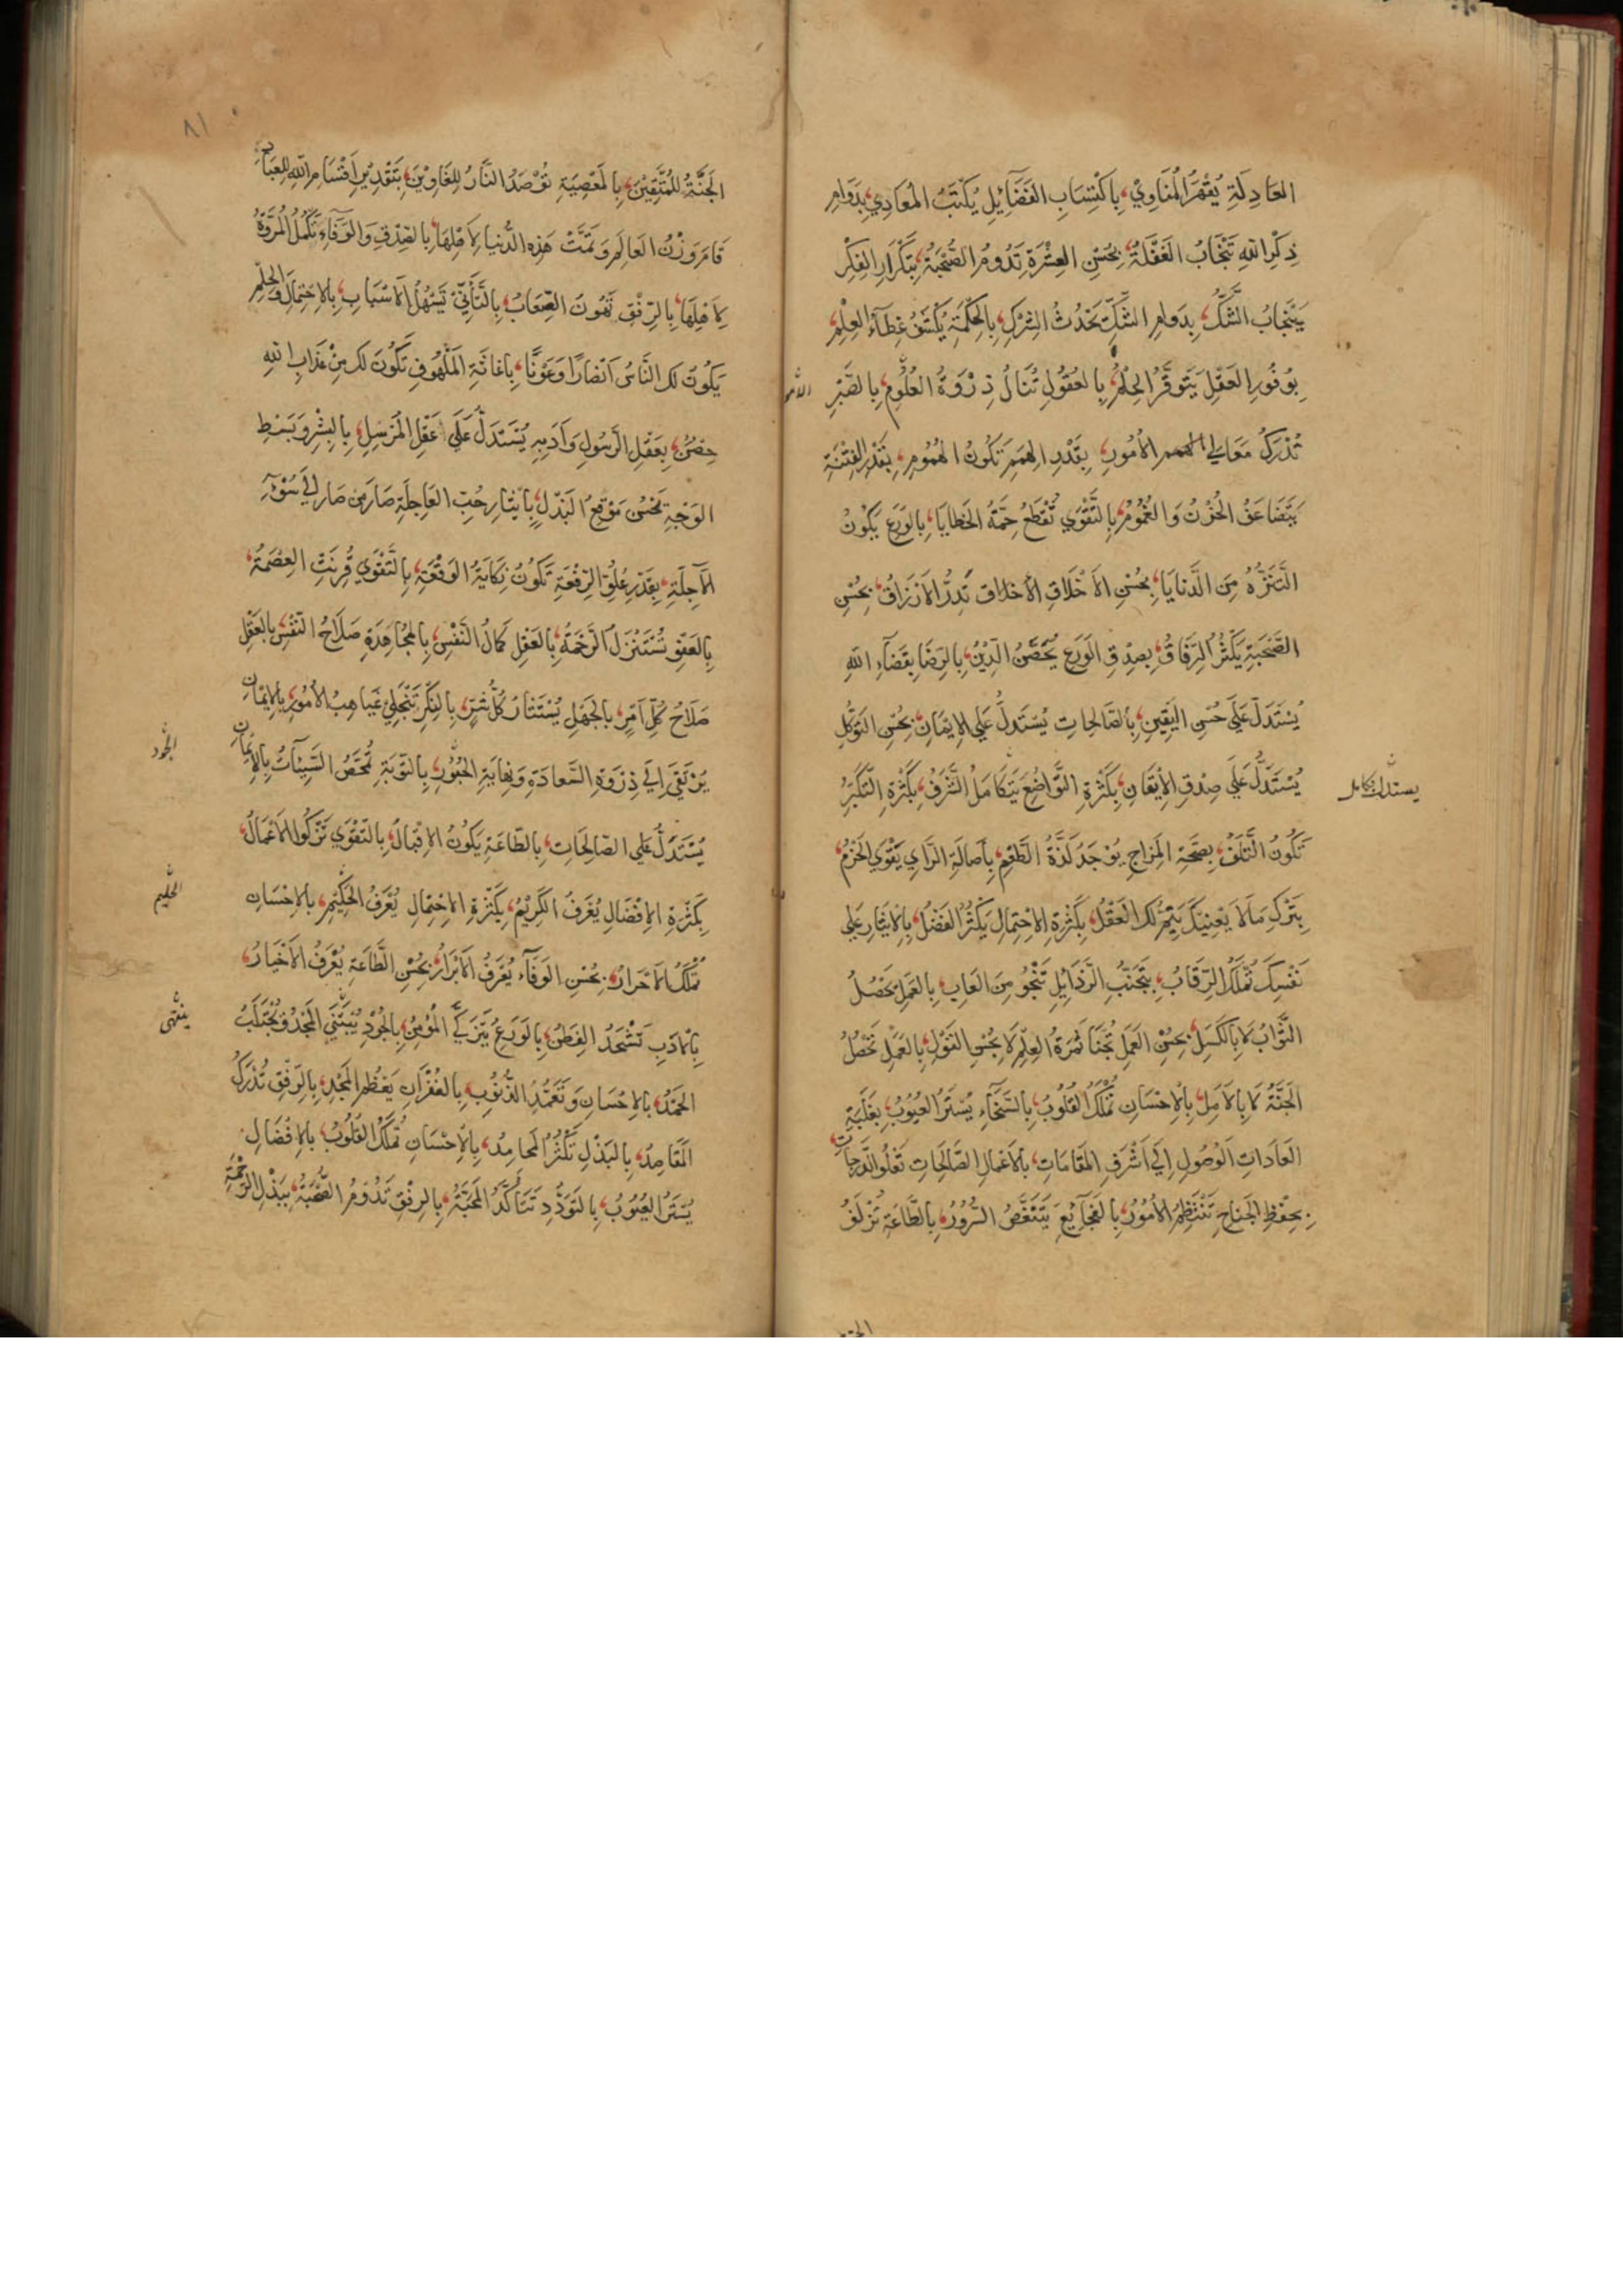 العَادِلَةِ يُقْهَرُ المُنَاوِيْ، بِاكْتِسَابِ الفَضَآئِلِ يُكْبَتُ المُعَادِي، بِدَوَامِ
ذِكْرِ اللهِ تَنْجَابُ الغَفْلَةُ، بِحُسْنِ العِشْرَةِ تَدُومُ الصُّحْبَةُ، بِتَكْرَارِ الفِكْرِ
يَنْجَابُ الشَّكُّ، بِدَوَامِ الشَّكِّ يَحْدُثُ الشِّرْكُ، بِالحِكْمَةِ يُكْشَفُ غِطَآءُ العِلْمِ،
بِوُفُورِ العَقْلِ يَتَوَفَّرُ الحِلْمُ، بِالعُقُولِ تُنَالُ ذِرْوَةُ العُلُومِ، بِالصَّبْرِ
تُدْرَكُ مَعَالِي الامور، بِقَدْرِ الهِمَمِ تَكُونُ الهُمُومِ، بِقَدْرِ الفِتْنَةِ
يَتَضَاعَفُ الحُزْنُ وَالغُمُومُ، بِالتَّقْوَي تُقْطَعُ حُمَةُ الخَطَايَا، بِالوَرَعِ يَكُونُ
التَّنَزُّهُ مِنَ الدَّنَايَا، بِحُسْنِ الأَخْلَاقِ تَدِرُّ الأَرْزَاقُ، بِحُسْنِ
الصُّحْبَةِ يَكْثُرُ الرِّفَاقُ، بِصِدْقِ الوَرَعِ يُحَصَّنُ الدِّيْنُ، بِالرِّضَا بِقَضَآءِ اللهِ
يُسْتَدَلُّ عَلَي حُسْنِ اليَقِينِ، بِالصَّالِحَاتِ يُسْتَدَلُّ عَلَي الإِيمَانِ، بِحُسْنِ التَوَكُّلِ
يُسْتَدَلُّ عَلَي صِدْقِ الإِيْقَانِ، بِكَثْرَةِ التَّوَاضُعِ يَتَكَامَلُ الشَّرَفُ، بِكَثْرَةِ التَّكَبُّرِ
يستدل يتكامل
تَكُونُ التَّلَفُ، بِصِحَّةِ المِزَاجِ يُوْجَدُ لَذَّةُ الطَّعْمِ، بِأَصَالَةِ الرَّاي يَقْوَي الحَزْمُ،
بِتَرْكِ مَالَا يَعْنِيكَ يَتِمُّ لَكَ العَقْلُ، بِكَثْرَةِ الاِحْتِمَالِ يَكْثُرُ الفَضْلُ، بِالاِيْثَارِ عَلَي
نَفْسِكَ تُمْلَكُ الرِّقَابُ، بِتَجَنُّبِ الرَّذَايِلِ تَنْجُو مِنَ العَابِ، بِالعَمَلِ يَحْصُلُ
الثَّوَابُ لَا بِالكَسَلِ، بِحُسْنِ العَمَلِ تُجْنَا ثَمَرَةُ العِلْمِ لَا بِحُسْنِ القَوْلِ، بِالعَمَلِ تَحْصُلُ
الجَنَّةُ لَا بِالأَمَلِ، بِالإِحْسَانِ تُمْلَكُ القُلُوبُ، بِالسَّخَآءِ يُسْتَرُ العُيُوبُ، بِغَلَبَةِ
العَادَاتِ الوُصُولِ اِلَي اَشْرَفِ المَقَامَاتِ، بِالأَعْمَالِ الصَّالِحَاتِ تَعْلُو الدَّرَجَاتِ،
بِحِفْظِ الجَنَاحِ تَنْتَظِمُ الأُمُورُ، بِالفَجَآئِعِ يَتَنَغَّصُ السُّرُورُ، بِالطَّاعَةِ تُزْلَفُ
الجَنَّةُ لِلْمُتَّقِيْنَ، بِالمَعْصِيَةِ تُوْصَدُ النَّارُ لِلْغَاوِيْنَ، بِتَقْدِيْرِ اَقْسَامِ اللهِ لِلعِبَادِ
قَامَ وَزْنُ العَالَمِ وَتَمَّتْ هَذِهِ الدُّنيَا لِأَهْلِهَا، بِالصِّدْقِ وَالوَفَآءِ تَكْمُلُ المُرُوَّةُ
لِأَهْلِهَا، بِالرِّفْقِ تَهُونَ الصِّعَابُ، بِالتَّأَنِّي تَسْهُلُ الأَسْبَابِ، بِالاِحْتِمَالِ وَالحِلْمِ
يَكُونُ لَكَ النَّاسُ اَنْصَارًا وَعَوْنًا، بِاغَاثَةِ المَلْهُوفِ تَكُونَ لَكَ مِنْ عَذَابِ اللهِ
حِصْنٌ، بِعَقْلِ الرَّسُولِ وَاَدَبِهِ يُسْتَدَلُّ عَلَي عَقْلِ المُرْسِلِ، بِالبِشْرِ وَبَسْطِ
الوَجْهِ يَحْسُنُ مَوْقِعُ البَذْلِ، بِاِيْثَارِ حُبِّ العَاجِلَةِ صَارَ مَنْ صَارَ اِلَي سُوْءِ
الآجِلَةِ، بِقَدْرِ عُلُوِّ الرِّفْعَةِ تَكُونُ نِكَايَةُ الوَقْعَةِ، بِالتَّقْوَي قُرِنَتِ العِصْمَةُ،
بِالعَفْوِ تُسْتَنْزَلُ الرَّحْمَةُ، بِالعَقْلِ كَمَالُ النَّفْسِ، بِالمُجَاهَدَةِ صَلَاحُ النَّفْسِ، بِالعَقْلِ
صَلَاحُ كُلِّ اَمْرٍ، بِالجَهْلِ يُسْتَثَارُ كُلُّ شَرٍّ، بِالفِكْرِ تَنْجَلِي غَيَاهِبُ الأُمُورِ، بِالإِيْمَانِ
يَرْتَقَي اِلَي ذِرْوَةِ السَّعَادَةِ وَنِهَايَةِ الحُبُوْرِ، بِالتَّوْبَةِ تُمَحَّصُ السَّيِّئَاتُ، بِالإِيْمَانِ
يُسْتَدَلُّ عَلَي الصَّالِحَاتِ، بِالطَّاعَةِ يَكُونُ الاِقْبَالُ، بِالتَّقْوَي تَزْكُوا الأَعْمَالُ،
بِكَثْرَةِ الإِفْضَالِ يُعْرَفُ الكَرِيْمُ، بِكَثْرَةِ الاِحْتِمَالِ يُعْرَفُ الحَكِيْمُ، بِالإِحْسَانِ
الحليم
تُمْلَكُ الأَحْرَارُ، بِحُسْنِ الوَفَآءِ يُعْرَفُ الأَبْرَارُ، بِحُسْنِ الطَّاعَةِ يُعْرَفُ الأَخْيَارُ،
بِالأَدَبِ تُشْحَذُ الفِطَنُ، بِالوَرَعِ يَتَزَكَّي المُؤْمِنُ، بِالجُوْدِ يُبْتَنَي المَجْدُ وَيُجْتَلَبُ
الحَمْدُ، بِالإِحْسَانِ وَتَغَمُّدِ الذُّنُوبِ، بِالغُفْرَانِ يَعْظُمُ المَجْدُ، بِالرِّفْقِ تُدْرَكُ
المَقَاصِدُ، بِالبَذْلِ تَكْثُرُ المَحَامِدُ، بِالإِحْسَانِ تُمْلَكُ القُلُوبُ، بِالإِفْضَالِ
يُسْتَرُ العُيُوبُ، بِالتَوَدُّدِ تَتَأَكَّدُ المَحَبَّةُ، بِالرِفْقِ تَدُوْمُ الصُّحْبَةُ، بِبَذْلِ الرَّحْمَةِ